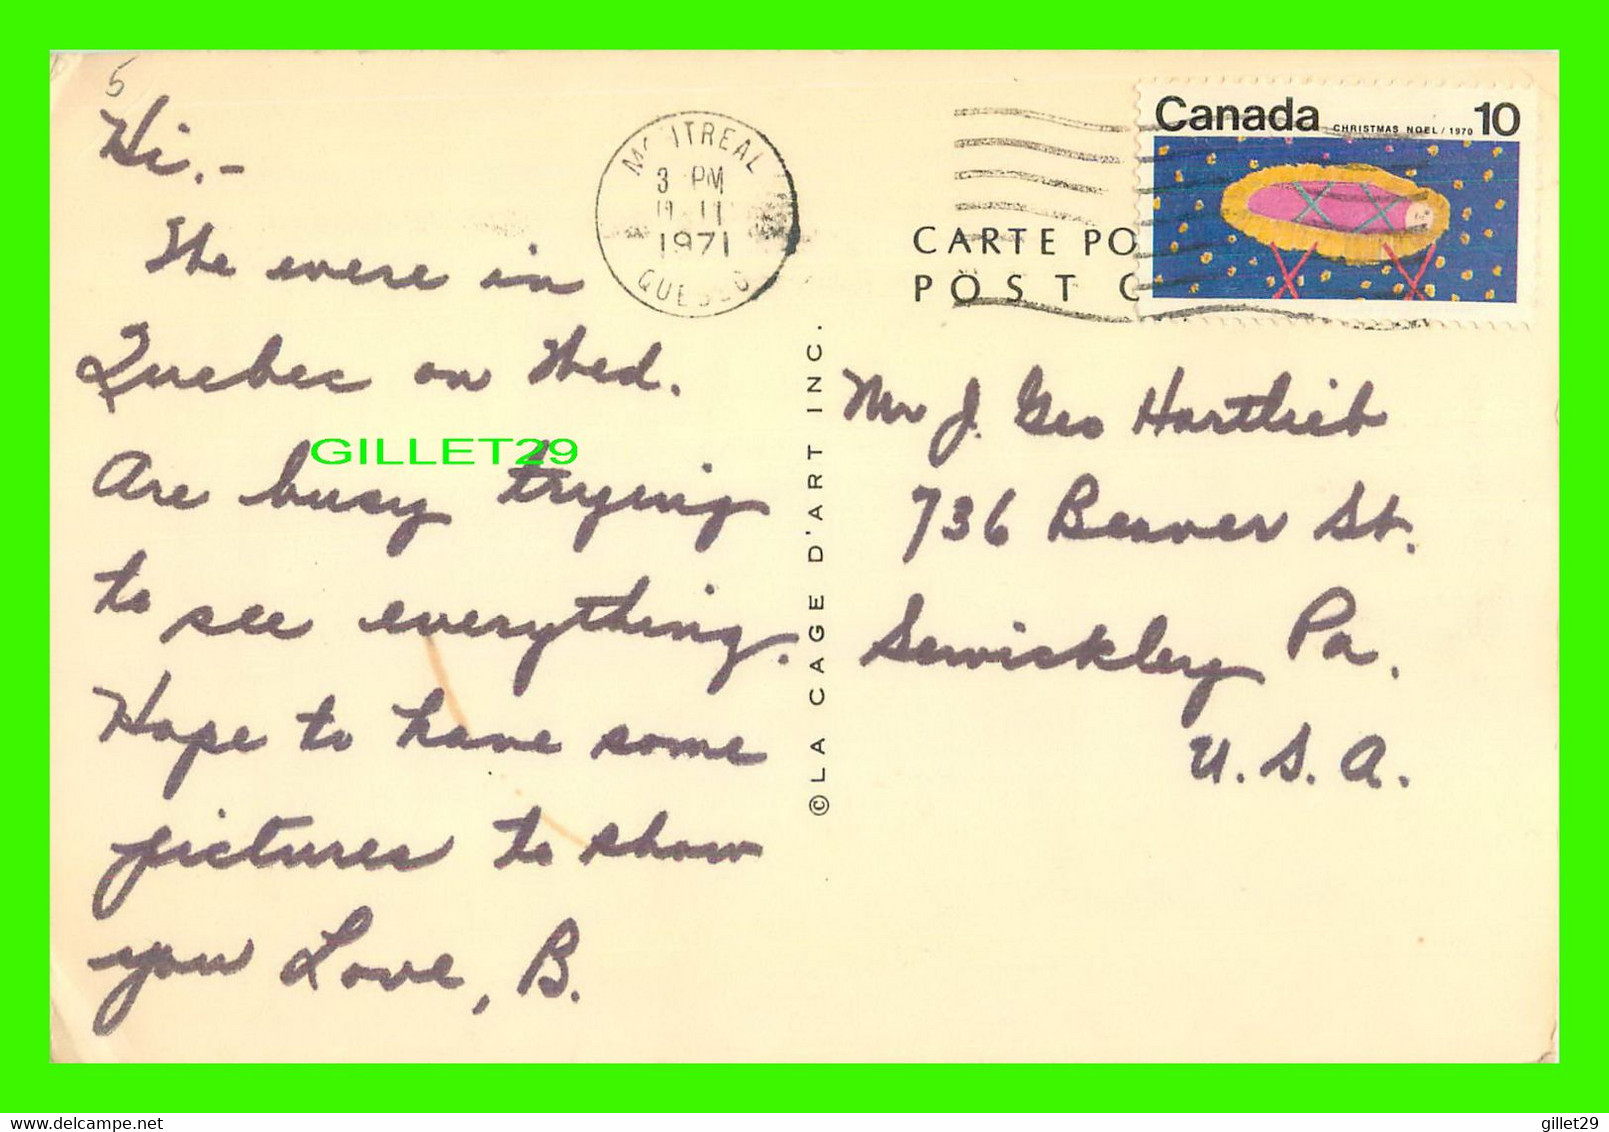 5
Hi.-
We were in
Quebec on Wed.
Are busy trying
to see everything.
Hope to have some
pictures to show
you Love, B.
MONTREAL
3 PM
11 II
1971
QUEBEC
Canada CHRISTMAS NOEL / 1970 10
CARTE PO
POST C
© LA CAGE D'ART INC.
Mr J. Geo Hartlieb
736 Beaver St.
Sewickley Pa.
U.S.A.
GILLET29
delcampe.net
gillet29